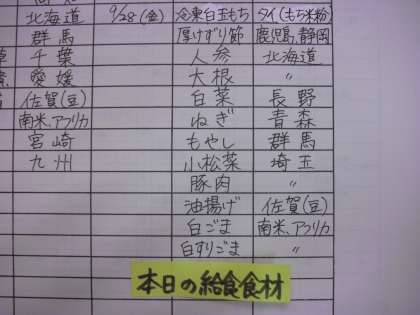 北海道 9/28(金) 冷東白玉もち タイ(もち米粉)
群馬 厚けずり節 鹿児島、静岡
千葉 人参 北海道
愛媛 大根 〃
佐賀(豆) 白菜 長野
南米、アフリカ ねぎ 青森
宮崎 もやし 群馬
九州 小松菜 埼玉
豚肉 〃
油揚げ 佐賀(豆)
白ごま 南米、アフリカ
白すりごま 〃
本日の給食食材